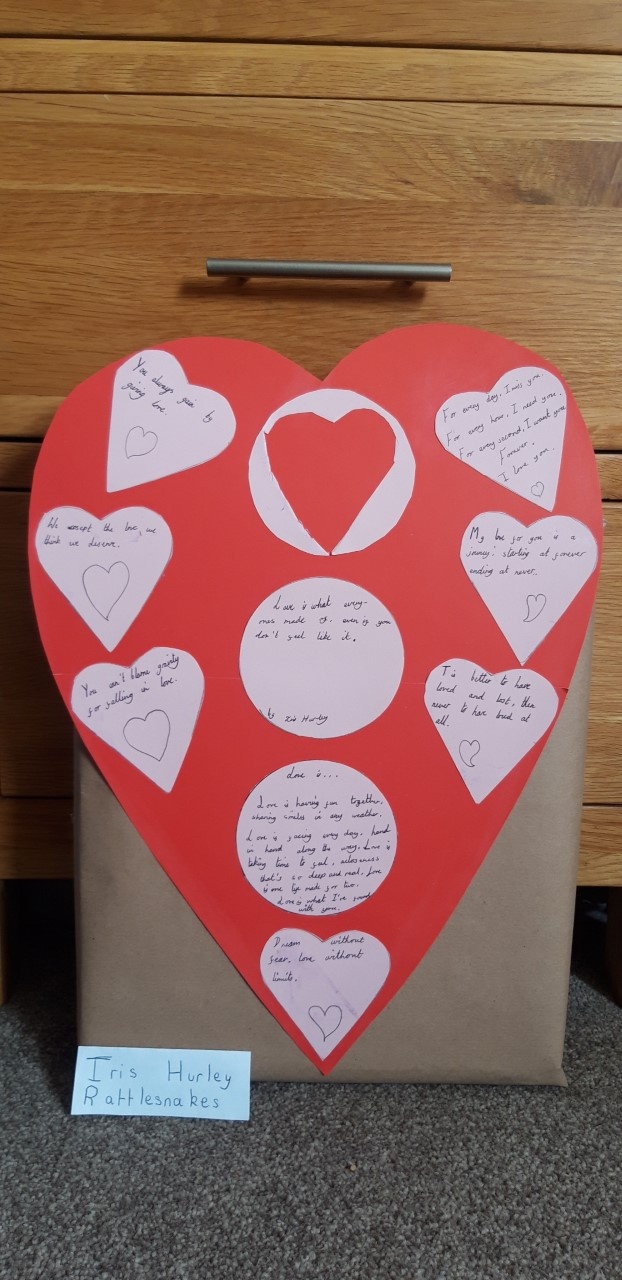 You always gain by
giving love.
For every day, I miss you.
For every hour, I need you.
For every second, I want you
Forever.
I love you.
We accept the love, we
think we deserve.
My love for you is a
journey: starting at forever
ending at never.
Love is what every-
ones made of. even if you
don't feel like it.
by Iris Hurley
You can't blame gravity
for falling in love.
T is better to have
loved and lost, then
never to have loved at
all.
Love is...
Love is having fun together,
sharing smiles in any weather.
Love is facing every day, hand
in hand along the way. Love is
taking time to feel,
that's so deep and real. Love
is one made for two.
Love is what I've found
with you.
Dream without
fear. love without
limits.
Iris Hurley
Rattlesnakes